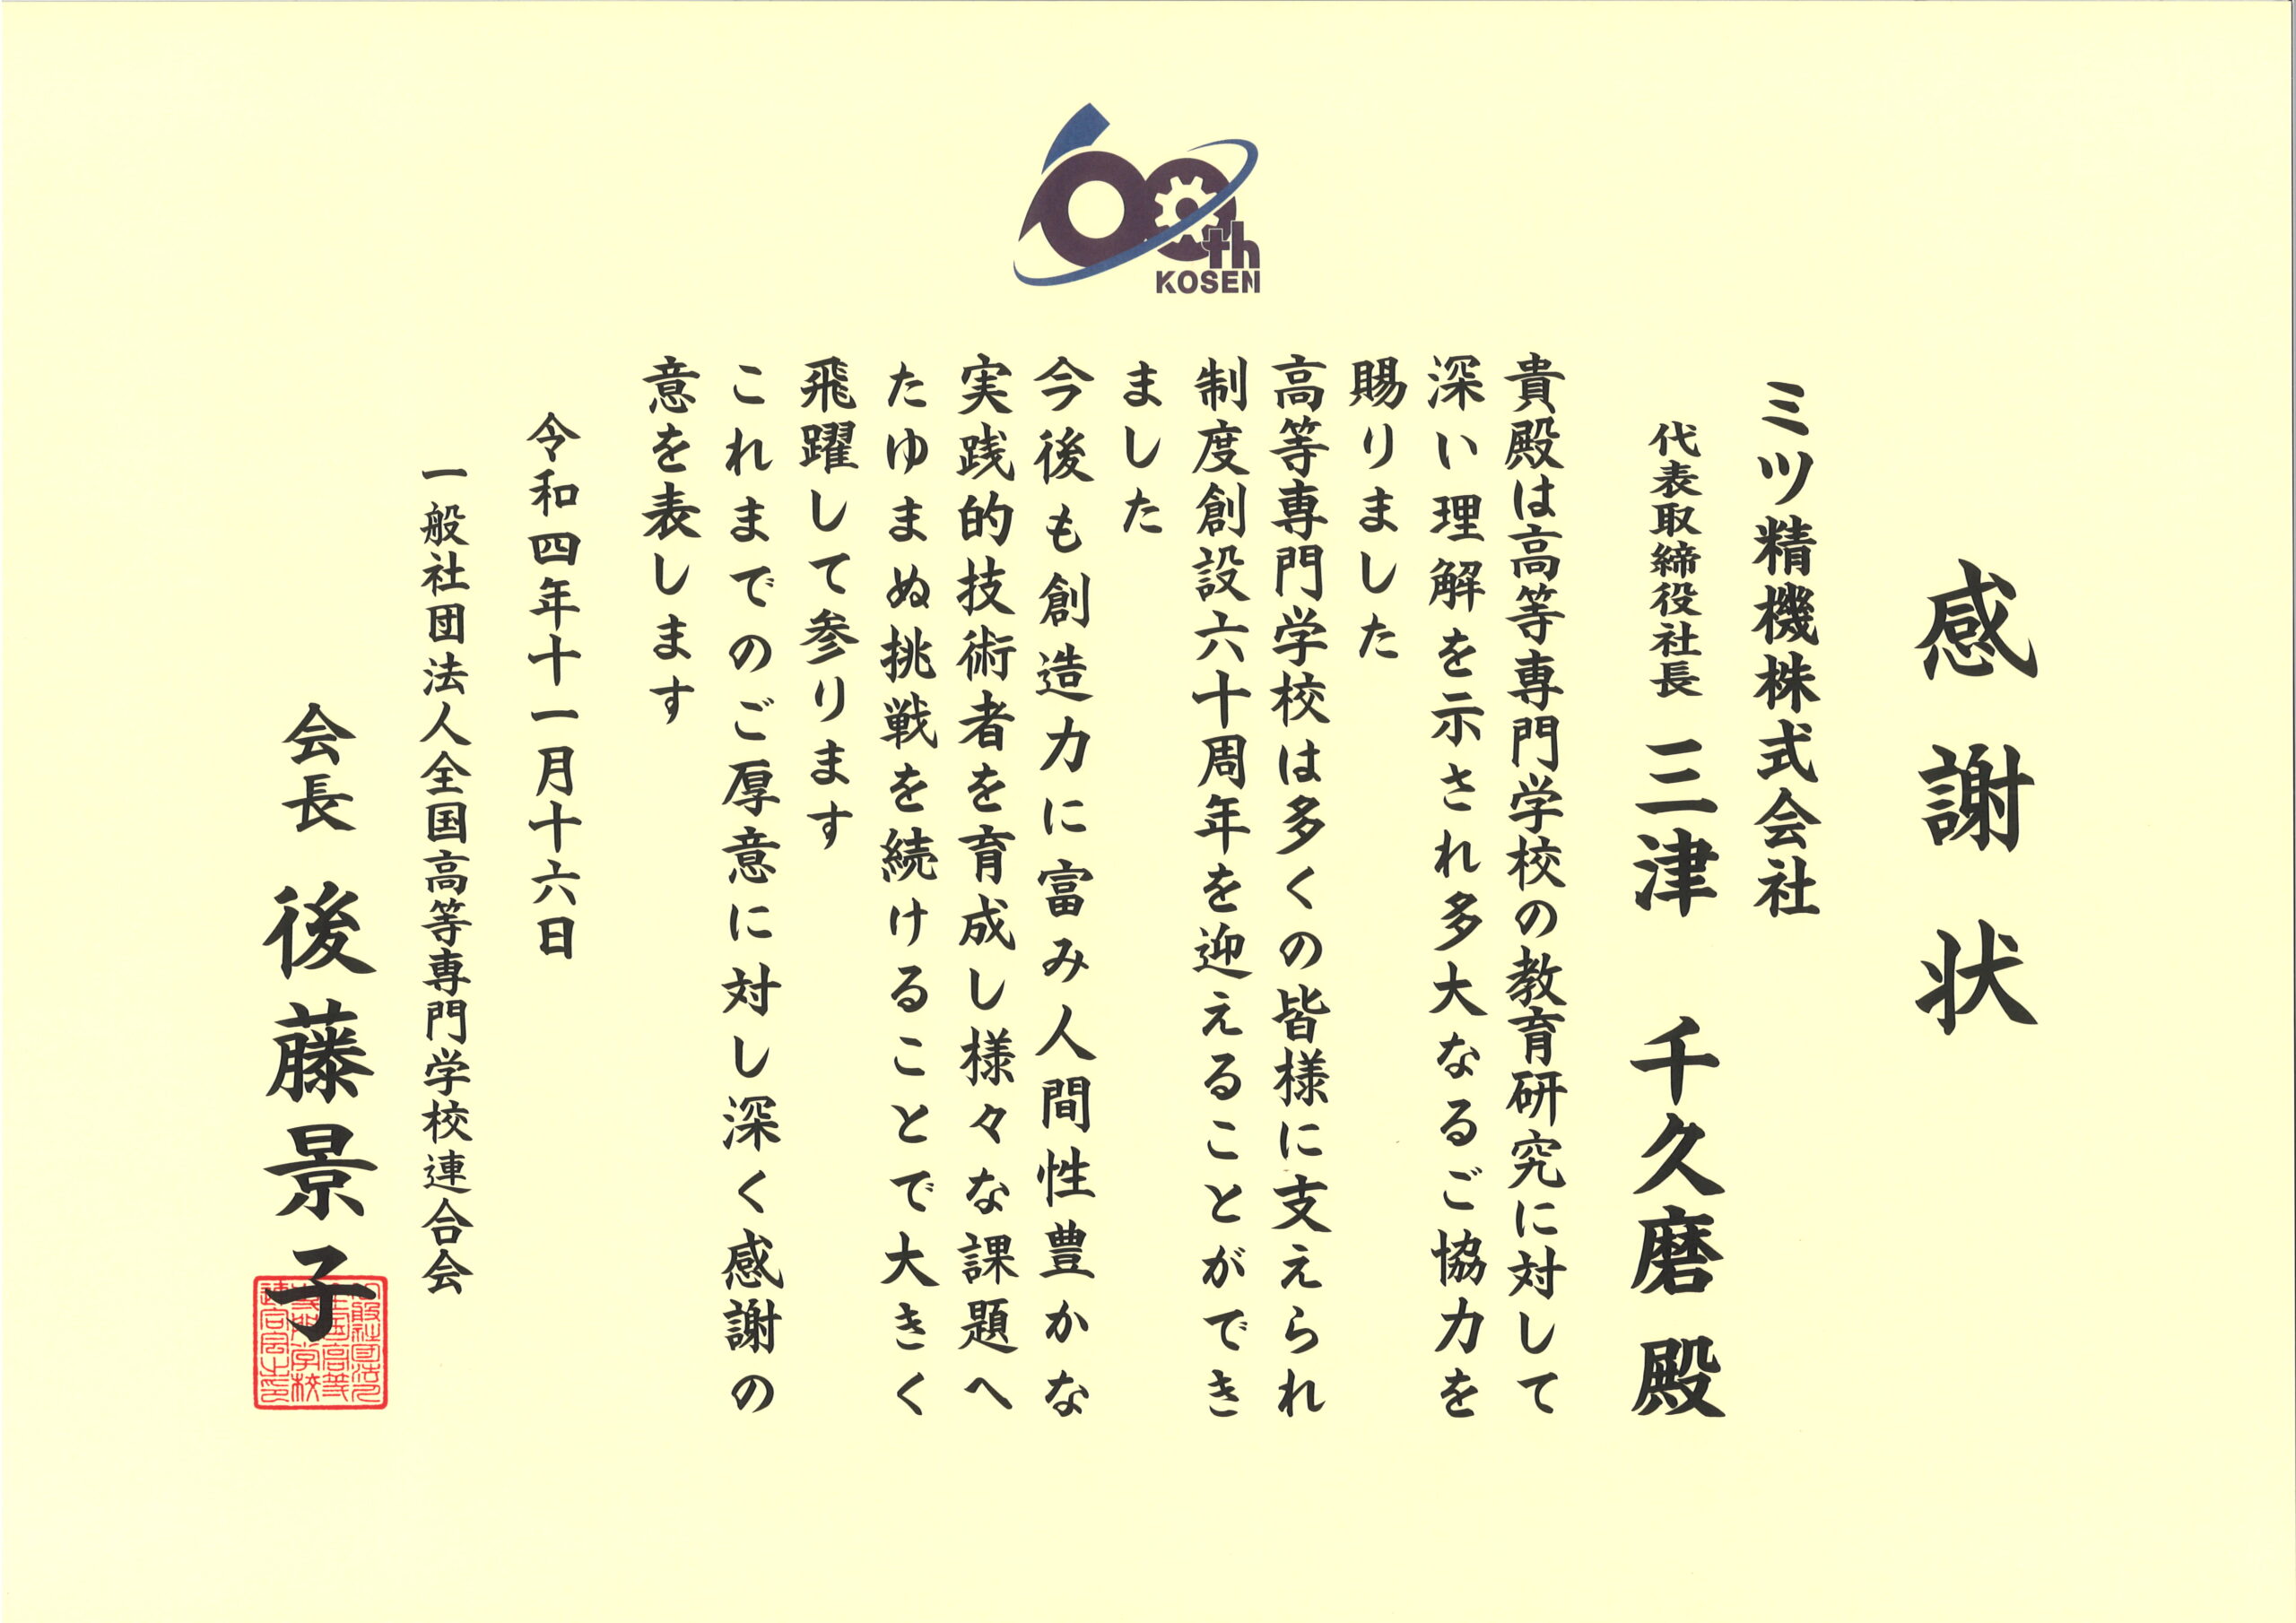 60th
KOSEN
感謝状
ミツ精機株式会社
代表取締役社長 三津 千久磨 殿
貴殿は高等専門学校の教育研究に対して
深い理解を示され多大なるご協力を
賜りました
高等専門学校は多くの皆様に支えられ
制度創設六十周年を迎えることができ
ました
今後も創造力に富み人間性豊かな
実践的技術者を育成し様々な課題へ
たゆまぬ挑戦を続けることで大きく
飛躍して参ります
これまでのご厚意に対し深く感謝の
意を表します
令和四年十一月十六日
一般社団法人全国高等専門学校連合会
会長 後藤景子